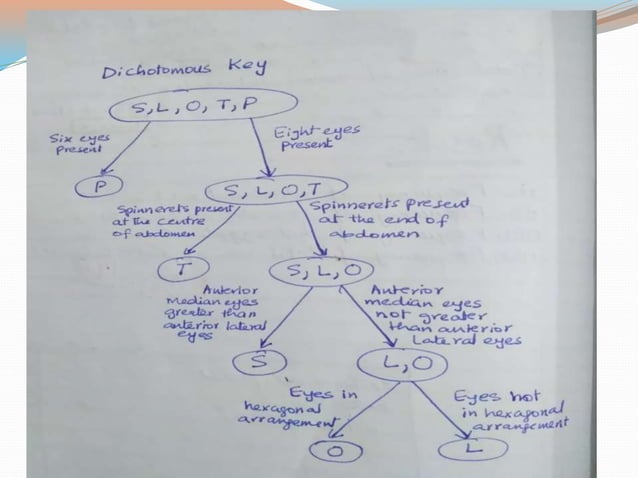 Dichotomous Key
S, L, O, T, P
Six eyes
Present
Eight eyes
Present
P
S, L, O, T
Spinnerets present
at the centre
of abdomen
Spinnerets present
at the end of
abdomen
T
S, L, O
Anterior
Median eyes
greater than
anterior lateral
eyes
Anterior
median eyes
not greater
than anterior
Lateral eyes
S
L, O
Eyes in
hexagonal
arrangement
Eyes not
in hexagonal
arrangement
O
L